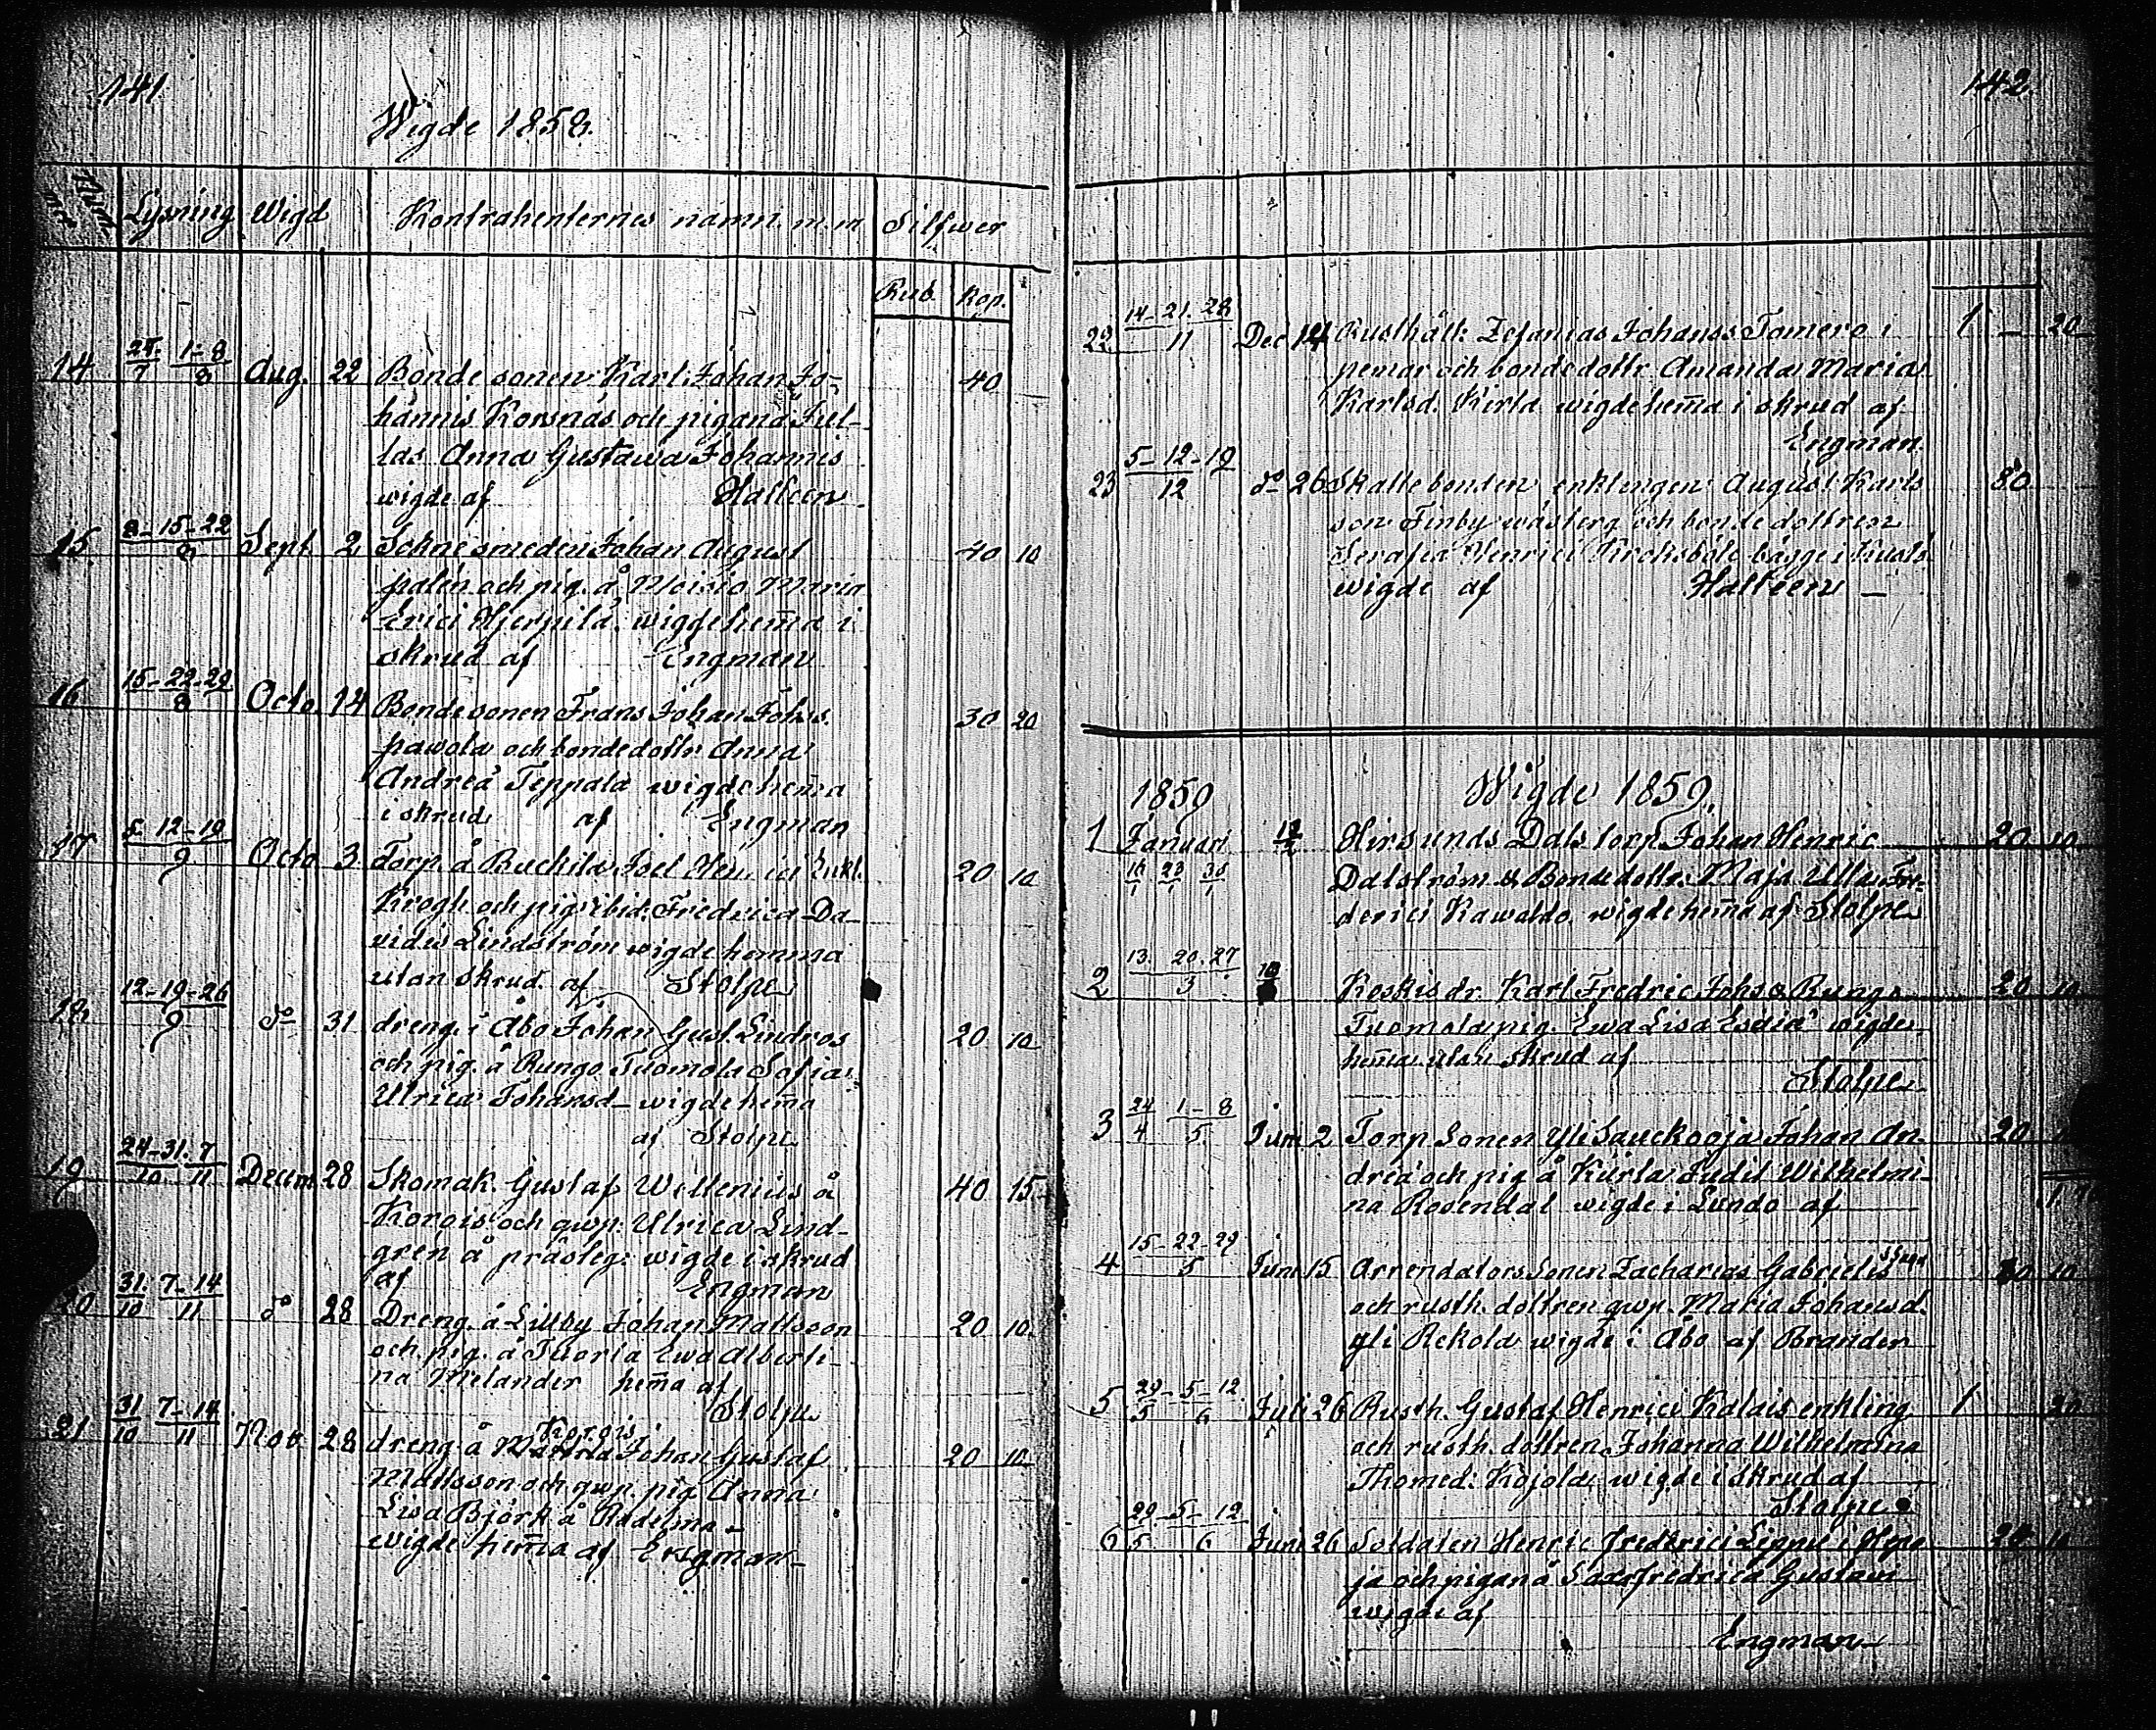 141
Wigde 1858.
Num Lysning Wigd Kontrahenternes namn m.m Silfwer
Rub. Kop.
14 25/7 1-8/8 Aug. 22 Bonde sonen Karl Johan Jo- 40
hannis Korsnäs och pigan å
las Anna Gustawa Johannis
wigde af Halleen
15 8-15-22/8 Sept 2 Johan August 40 10
palén och pig. å Moisio Maria
Erici Hjerpilä wigde hem̄a i
skrud af Engman
16 15-22-29/8 Octo. 14 Bondesonen Frans Johan Johs. 30 20
pawola och bondedottr. Anna
Andreä Teppala wigde hem̄a
i skrud af Engman
17 5-12-19/9 Octo 3 Torp. å Joel Henrici Enkl. 20 10
Krogh och pig. ibid. Fredrica Da-
vidis Lindström wigde hemma
utan skrud. af Stolpe
18 12-19-26/9 do 31 dreng. i Åbo Johan Gust. Lindros 20 10
och pig. å Rungo Tuomola Sofia
Ulrica Johansd_ wigde hem̄a
af Stolpe
19 24-31/10 7/11 Decem 28 Skomak. Gustaf Willenius å 40 15
Korois och qwp. Ulrica Lind-
grén å prästeg: wigde i skrud
af Engman
20 31/10 7-14/11 do 28 Dreng. å Lillby Johan Mattsson 20 10.
och pig. å Tuorla Ewa Alberti-
na Melander hem̄a af
Stolpe
21 31/10 7-14/11 Nov 28 dreng å Korois Johan Gustaf 20 10
Mattsson och qwp. pig. Anna
Lisa Björk å
wigde hem̄a af Engman
142
22 14-21-28/11 Dec 14 Rusthåll: Zefanias Johanss Tomero i 1 – 20
pemar och bondedottr. Amanda Maria
Karlsd. Kirla wigde hem̄a i skrud af
Engman.
23 5-12-19/12 do 26 Skattebonden enklingen August Karls 80
son Finby wästerg och bondedottren
Serafia Henrici Kirchsböle bägge i Kustö
wigde af Halleen –
1859 Wigde 1859.
1 Januari Hirsunds Dals torp. Johan Henric 20 10
16/1 23/1 30/1 Dalström & Bondedottr. Maja Ulla Fre-
derici Kawaldo wigde hem̄a af Stolpe
2 13. 20. 27/3 Koskis dr. Karl Fredric Johs & Rungo 20 10
Tuomola pig. Ewa Lisa Esaiä wigde
hem̄a utan skrud af
Stolpe
3 24/4 1-8/5 Juni 2 Torp. Sonen Yli Sauckooja Johan An- 20
dreä och pig å Kürla Judit Wilhelmi-
na Rosendal wigde i Lundo af
4 15-22-29/5 Juni 15 Arrendators Sonen Zacharias Gabrielis 10
och rusth. dottren qwp. Maria Johansd.
yli Rekola wigde i Åbo af Brander
5 29/5 5-12/6 Juli 26 Rusth. Gustaf Henrici Kalais enkling 1 20
och rusth. dottren Johanna Wilhelmina
Thomed: Kojola wigde i skrud af
Stolpe
6 29/5 5-12/6 Juni 26 Soldaten Henric Frederici Lignel i 20 10
ja och pigan å Fredrica Gustawi
wigde af
Engman